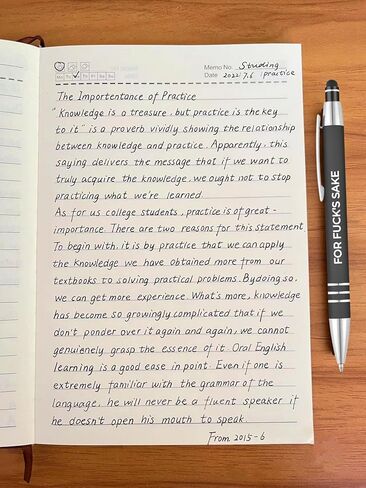 Memo No. Studing
Mo Tu We Th Fr Sa Su
Date 2022/7.6 practice
The Importentance of Practice
"Knowledge is a treasure, but practice is the key
to it" is a proverb vividly showing the relationship
between knowledge and practice. Apparently, this
saying delivers the message that if we want to
truly acquire the knowledge, we ought not to stop
practicing what we're learned.
As for us college students, practice is of great-
importance. There are two reasons for this statement.
To begin with, it is by practice that we can apply
the knowledge we have obtained more from our
textbooks to solving practical problems. By doing so,
we can get more experience. What's more, knowledge
has become so growingly complicated that if we
don't ponder over it again and again, we cannot
genuienely grasp the essence of it. Oral English
learning is a good ease in point. Even if one is
extremely familiar with the grammar of the
language, he will never be a fluent speaker if
he doesn't open his mouth to speak.
From 2015-6
FOR FUCK'S SAKE